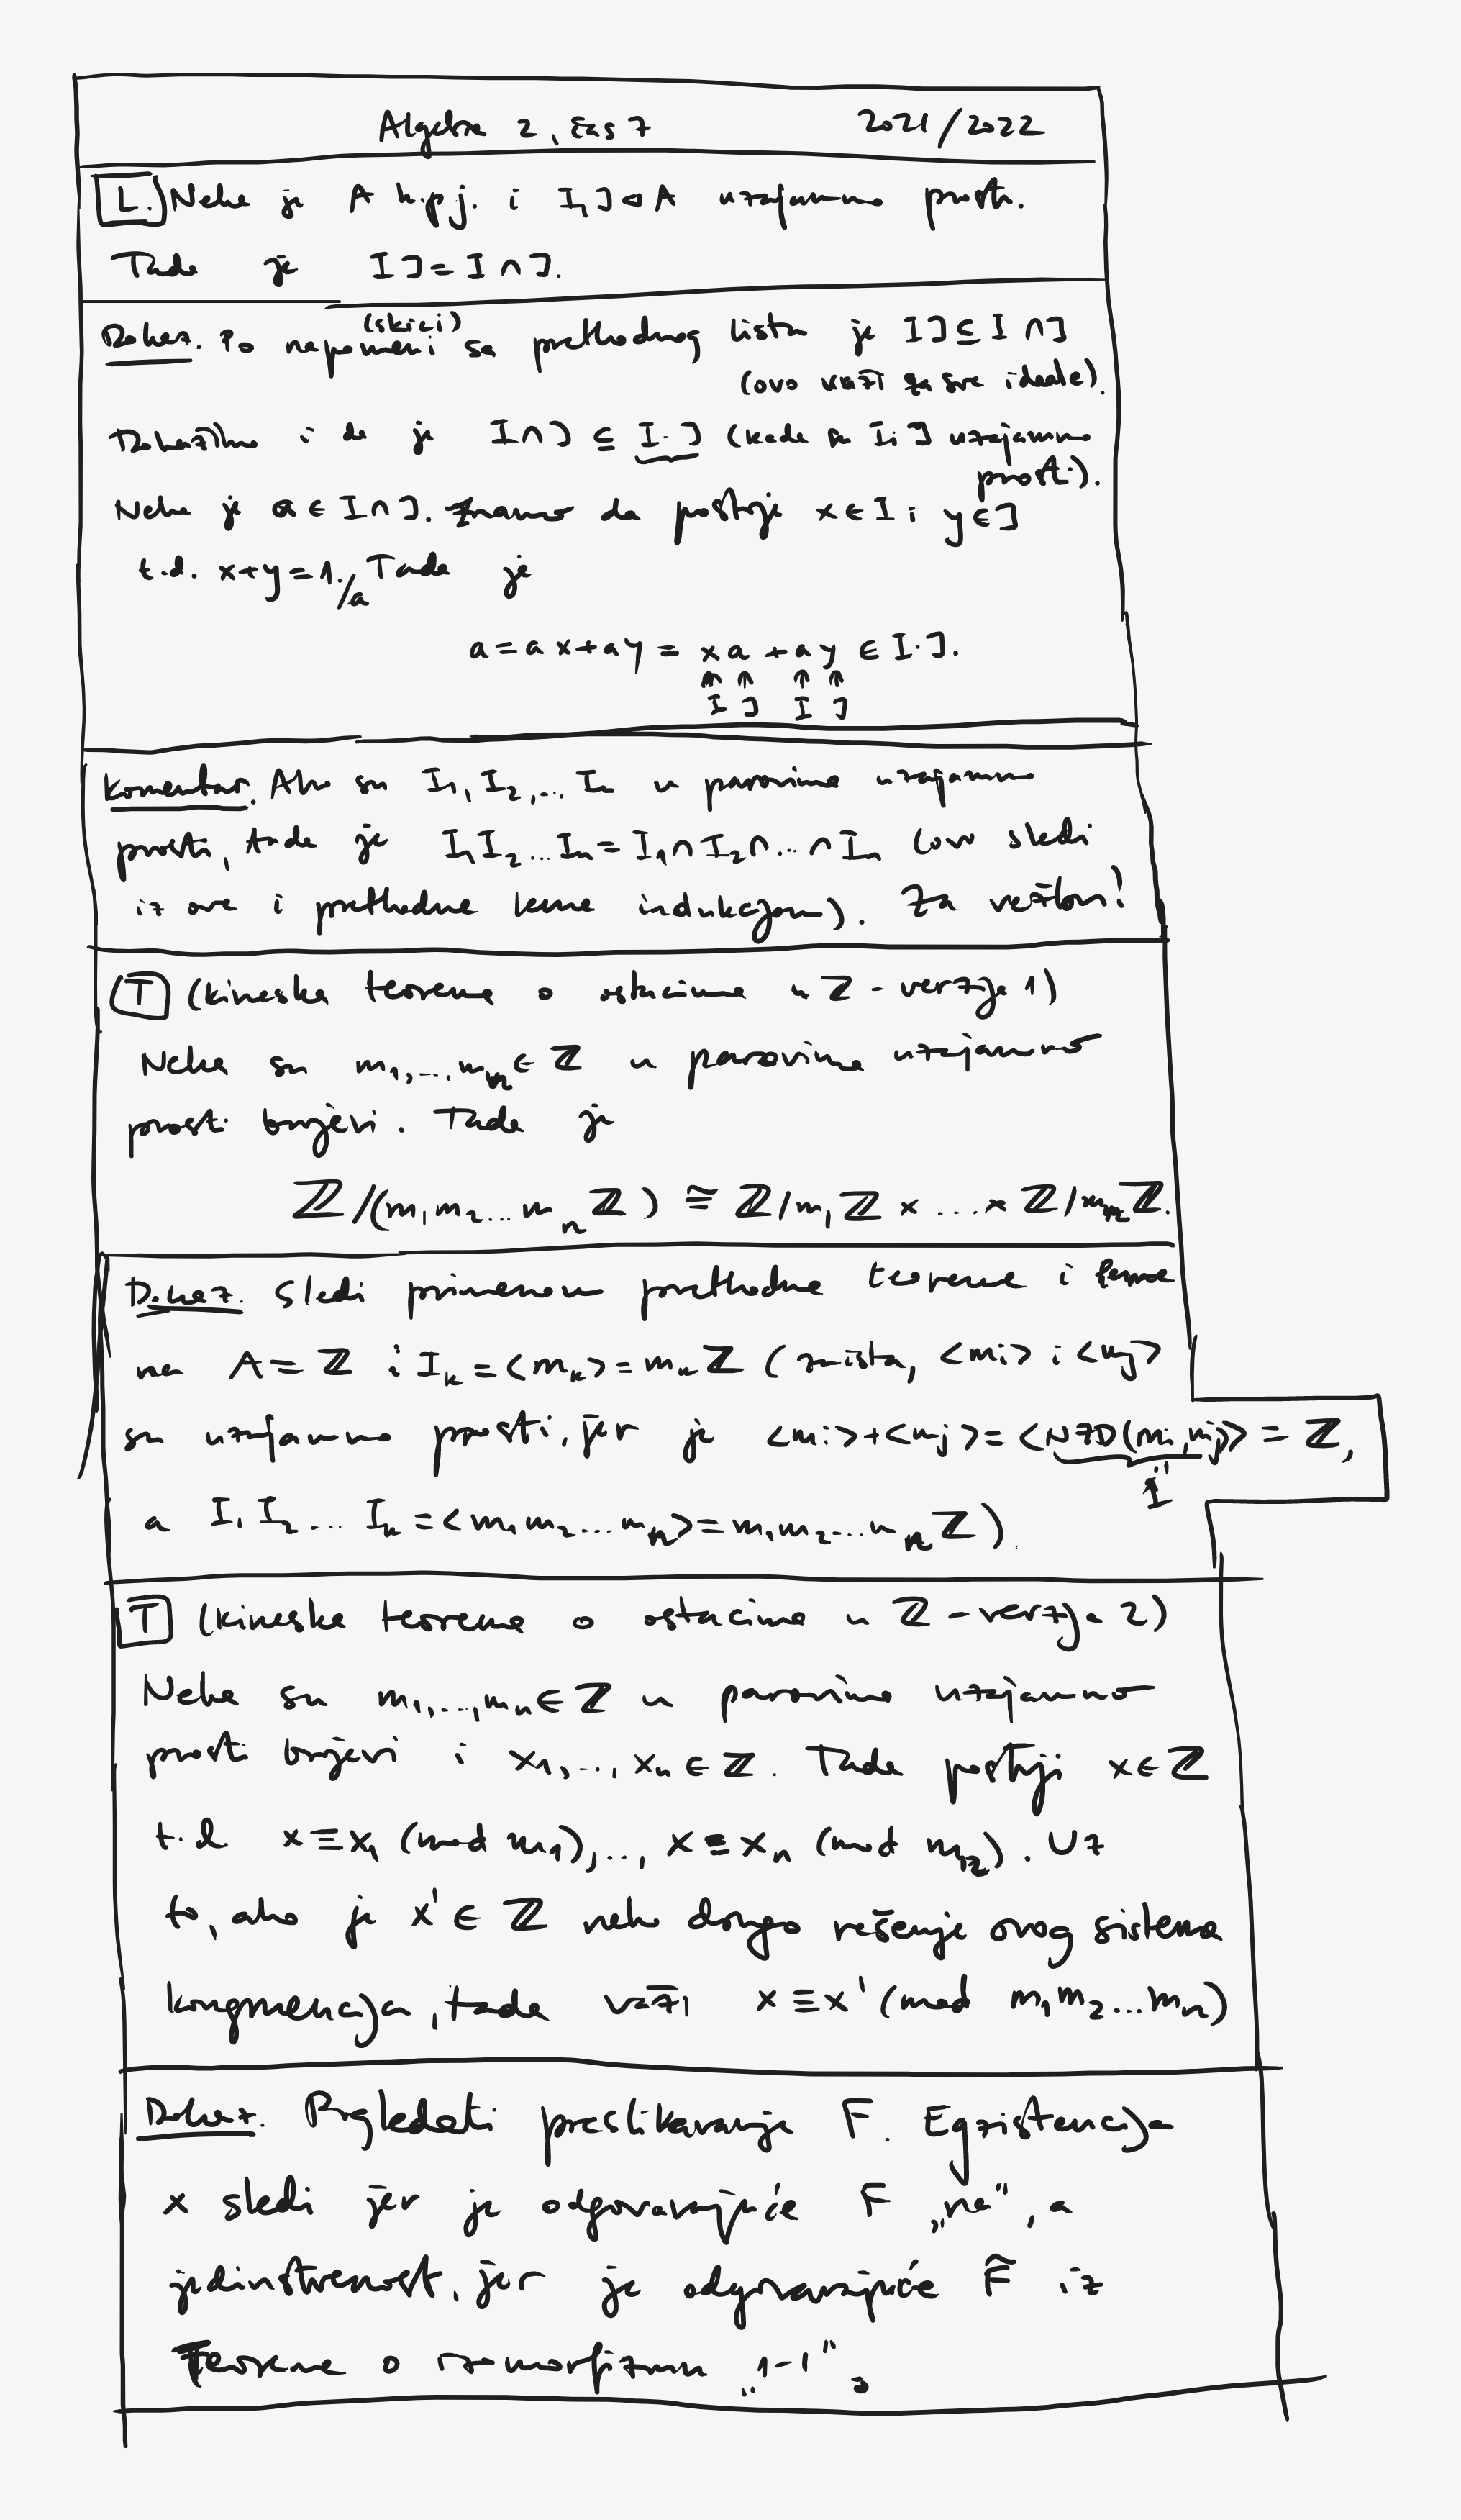 Algebra 2, čas 7 2021/2022
L. Neka je A k.p.j. i I, J ◁ A uzajamno prosti.
Tada je IJ = I ∩ J.
Dokaz. Po napomeni (skici) sa prethodnog lista je IJ ⊆ I ∩ J
(ovo važi za sve ideale).
Dokažimo i da je I ∩ J ⊆ I·J (kada su I i J uzajamno
prosti).
Neka je a ∈ I ∩ J. Znamo da postoje x ∈ I i y ∈ J
t.d. x+y=1. /a Tada je
a = ax + ay = xa + ay ∈ I·J.
↑ ↑ ↑ ↑
I J I J
Komentar. Ako su I₁, I₂, ... Iₙ u parovima uzajamno
prosti, tada je I₁I₂...Iₙ = I₁ ∩ I₂ ∩ ... ∩ Iₙ (ovo sledi
iz ove i prethodne leme indukcijom). Za vežbu!
T (Kineska teorema o ostacima u ℤ - verzija 1)
Neka su m₁, ..., mₙ ∈ ℤ u parovima uzajamno
prosti brojevi. Tada je
ℤ/(m₁m₂...mₙℤ) ≅ ℤ/m₁ℤ × ... × ℤ/mₙℤ.
Dokaz. Sledi primenom prethodne teoreme i leme
na A = ℤ i Iₖ = <mₖ> = mₖℤ (zaista, <mᵢ> i <mⱼ>
su uzajamno prosti, jer je <mᵢ>+<mⱼ> = <NZD(mᵢ, mⱼ)> = ℤ,
1
a I₁I₂...Iₙ = <m₁m₂...mₙ> = m₁m₂...mₙℤ).
T (Kineska teorema o ostacima u ℤ - verzija 2)
Neka su m₁, ..., mₙ ∈ ℤ u parovima uzajamno
prosti brojevi i x₁, ..., xₙ ∈ ℤ. Tada postoji x ∈ ℤ
t.d. x ≡ x₁ (mod m₁), ..., x ≡ xₙ (mod mₙ). Uz
to, ako je x' ∈ ℤ neko drugo rešenje ovog sistema
kongruencija, tada važi x ≡ x' (mod m₁m₂...mₙ)
Dokaz. Pogledati preslikavanje F. Egzistencija
x sledi jer je odgovarajuće F „na“, a
jedinstvenost, jer je odgovarajuće F̃ iz
Teoreme o izomorfizmu „1-1“.